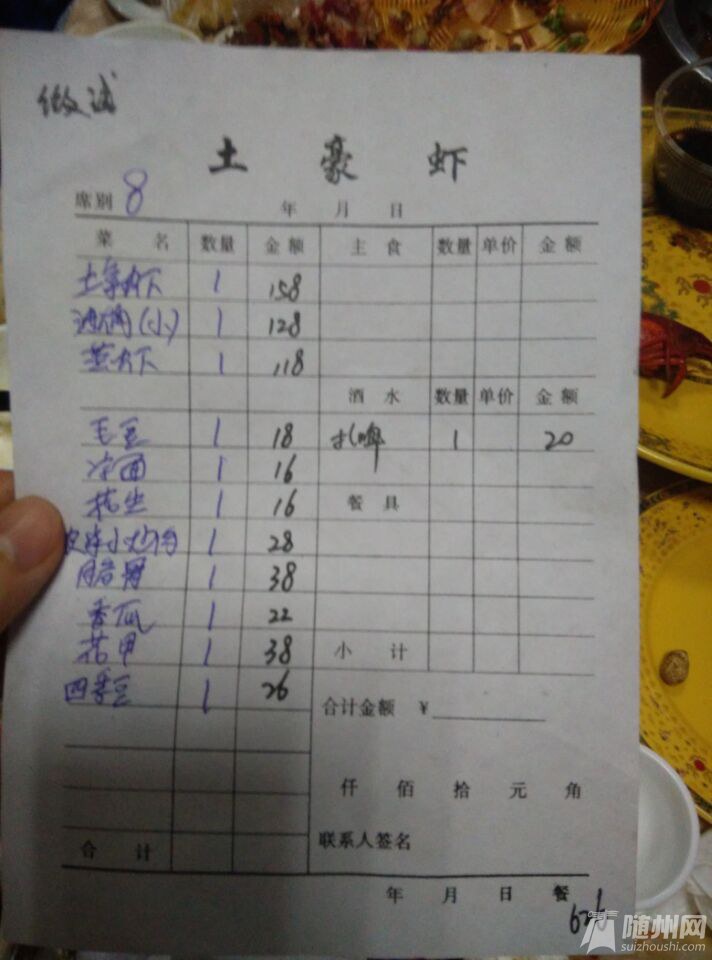 土豪虾
席别 8 年 月 日
菜名 数量 金额 主食 数量 单价 金额
土豪虾 1 158
油焖(小) 1 128
蒸虾 1 118
酒水 数量 单价 金额
毛豆 1 18 扎啤 1 20
凉面 1 16
花生 1 16 餐具
小炒肉 1 28
1 38
香瓜 1 22
花甲 1 38 小计
四季豆 1 26
合计金额 ¥
仟 佰 拾 元 角
合计 联系人签名
年 月 日 餐
626
随州网
suizhoushi.com